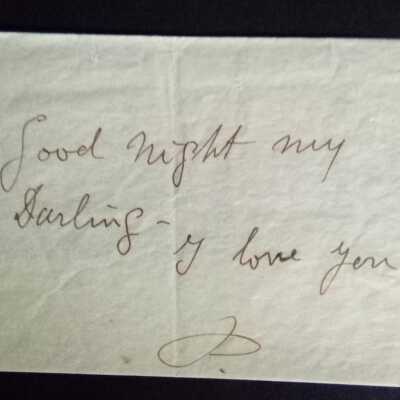 Good night my
Darling -
I love you